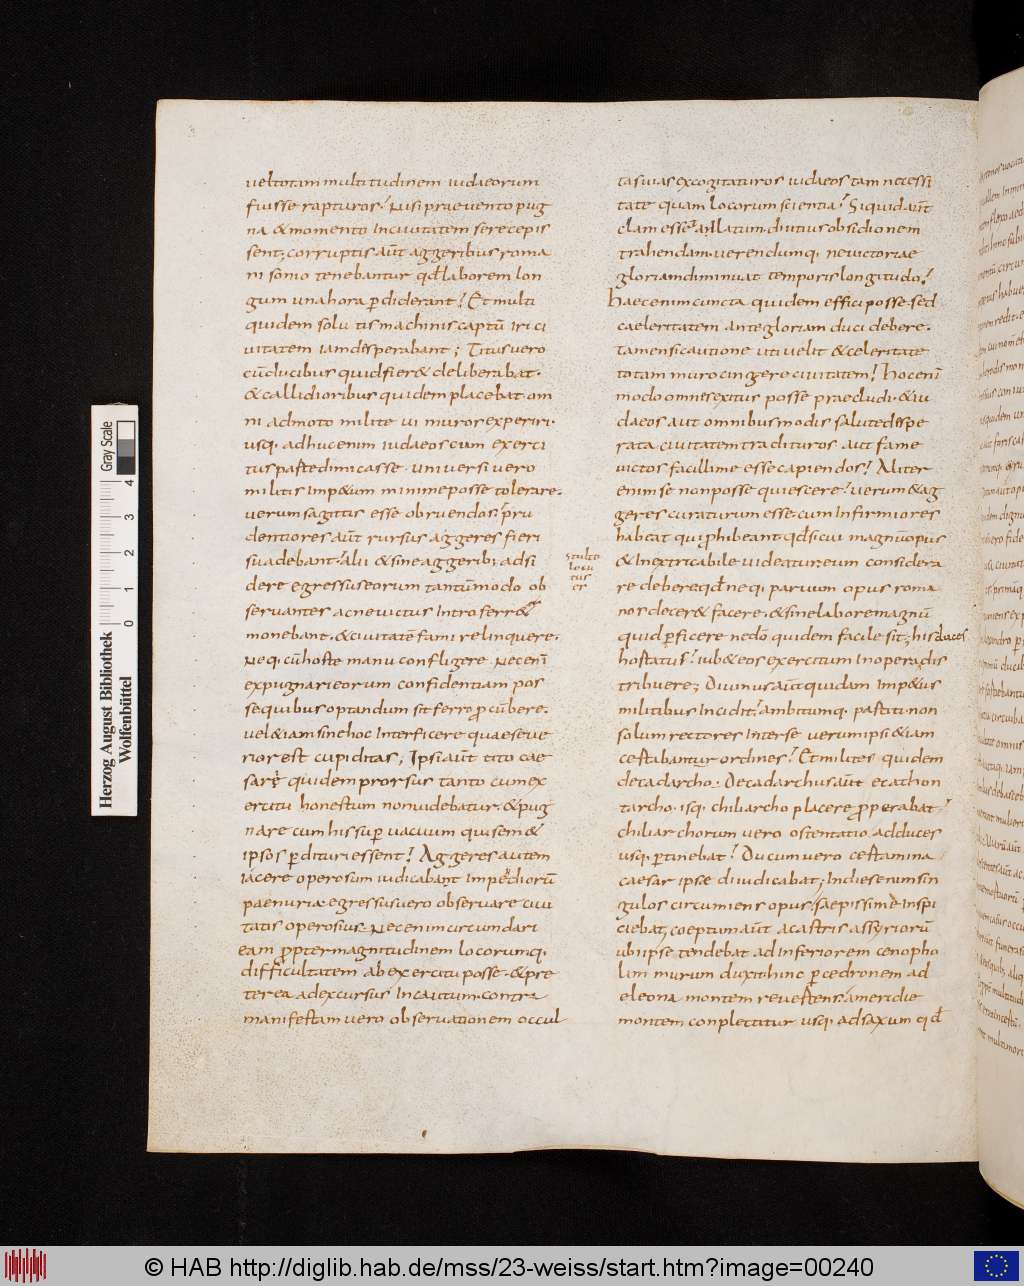 ueltotam multitudinem iudaeorum
fuisse rapturos. Nisi praeuento pug
na & momento Inciuitatem serecepis
sent; corruptis aut aggeribus roma
ni somo tenebantur qđ laborem lon
gum unahora ꝑdiderant! Et multi
quidem solutis machinis captū iri ci
uitatem iam desperabant; Titus uero
cūducibus quidfier& deliberabat.
& callidioribus quidem placebat om
ni admoto milite ui muros experiri.
usq. adhucenim iudaeos cum exerci
tus paste dimicasse. uniuersi uero
militis Imp&um minime posse tolerare.
uerum sagittis esse obruendos. pru
dentiores aūt rursus aggeres fieri
suadebant. alii & sine aggerib; adsi
dere egressus eorum tantūmodo ob
seruantes acneuictus Introferr&
monebant. & ciuitatē fami relinquere.
Neq. cū hoste manu confligere. Necenī
expugnari eorum confidentiam pos
se quibus optandum sit ferro ꝓcūbere.
uel & iam sine hoc Interficere quae seue
rior est cupiditas; Ipsi aūt tito cae
sari quidem prorsus tanto cum ex
ercitu honestum non uidebatur. & pug
nare cum his suꝑuacuum qui sem&
ipsos ꝑdituri essent! Aggeres autem
iacere operosum iudicabant Impediorū
paenuria. egressus uero obseruare ciui
tatis operosius. Necenim circumdari
eam ꝓpter magnitudinem locorumq.
difficultatem ab exercitu posse. & pre
terea ad excursus Incautum. contra
manifestam uero obseruationem occul
stulto
locu
tus
er
tas uias excogitaturos iudaeos tam necessi
tate quam locorum scientia! Siquid aūt
clam esse allatum. diutius obsidionem
trahendam. uerendumq. neuictoriae
gloriam diminuat temporis longitudo!
Haec enim cuncta quidem effici posse. sed
caeleritatem ante gloriam duci debere.
tamen si cautione uti uelit & celeritate
totam muro cingere ciuitatem! hoc enī
modo omnes exitus posse praecludi. & iu
daeos aut omnibus modis salute despe
rata ciuitatem tradituros aut fame
uictos facillime esse capiendos! Aliter
enim se non posse quiescere! uerum & ag
geres curaturum esse. cum Infirmiores
habeat qui ꝓhibeant. qđsicui magnūopus
& Inextricabile uideatur eum considera
re debere qđ neq. paruum opus roma
nos decer& facere. & sine labore magnū
quid ꝑficere nedō quidem facile sit; his duces
hostatus! iub& eos exercitum In opera dis
tribuere; Diuinus aūt quidam Imp&us
militibus Incidit! ambitumq. pastiti non
solum rectores Interse uerum ipsi & iam
cestabantur ordines! Et milites quidem
decadarcho. Decadarchus aūt ecathon
tarcho. isq. chiliarcho placere ꝓperabat!
chiliarchorum uero ostentatio adduces
usq. ꝑtinebat! Ducum uero cestamina
caesar ipse diiudicabat; In die senim sin
gulos circumiens opus saepissime Inspi
ciebat; coeptum aūt a castris assyriorū
ubi ipse tendebat ad Inferiorem cenopho
lim murum duxit. hinc ꝑ cedronem ad
eleona montem reuestens! ameridie
montem conplectitur usq. ad saxum qđ
Herzog August Bibliothek
Wolfenbüttel
0 1 2 3 4
Gray Scale
© HAB http://diglib.hab.de/mss/23-weiss/start.htm?image=00240